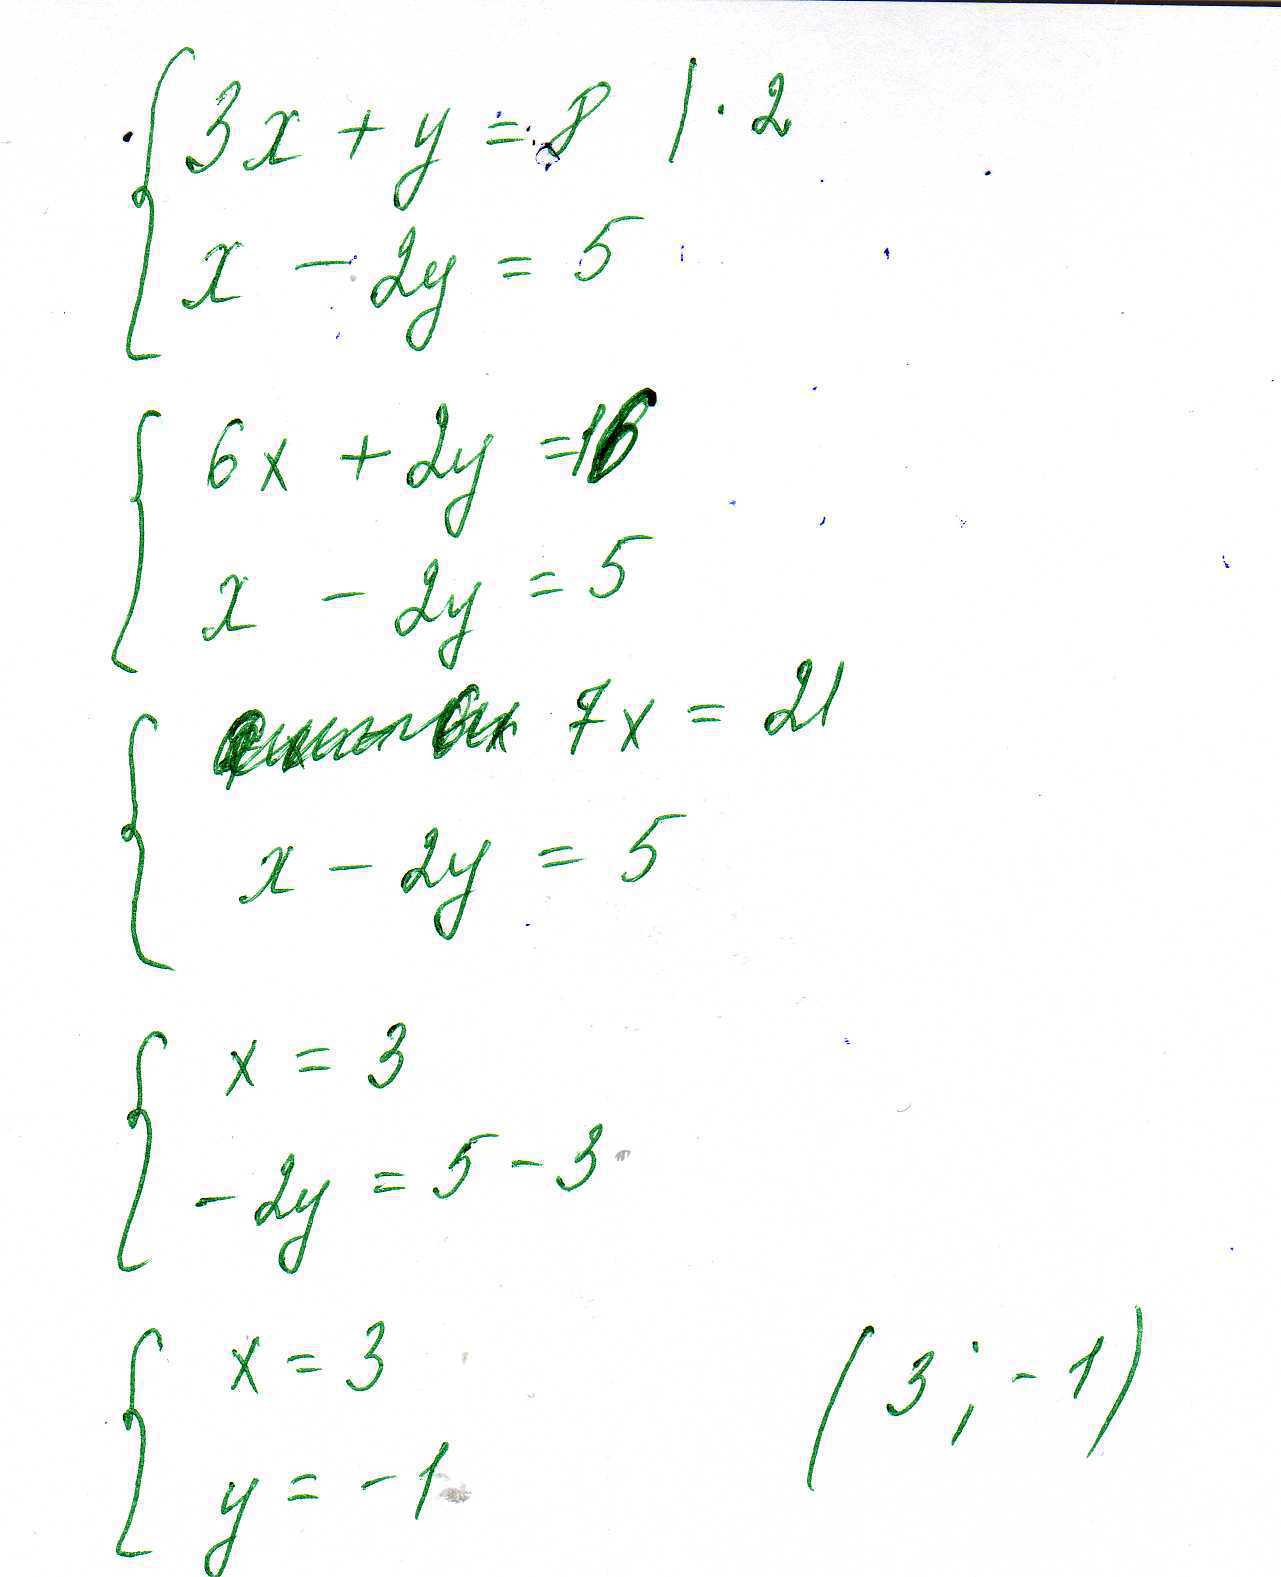 3x + y = 8 | · 2
x - 2y = 5
6x + 2y = 16
x - 2y = 5
7x = 21
x - 2y = 5
x = 3
-2y = 5 - 3
x = 3
(3; -1)
y = -1